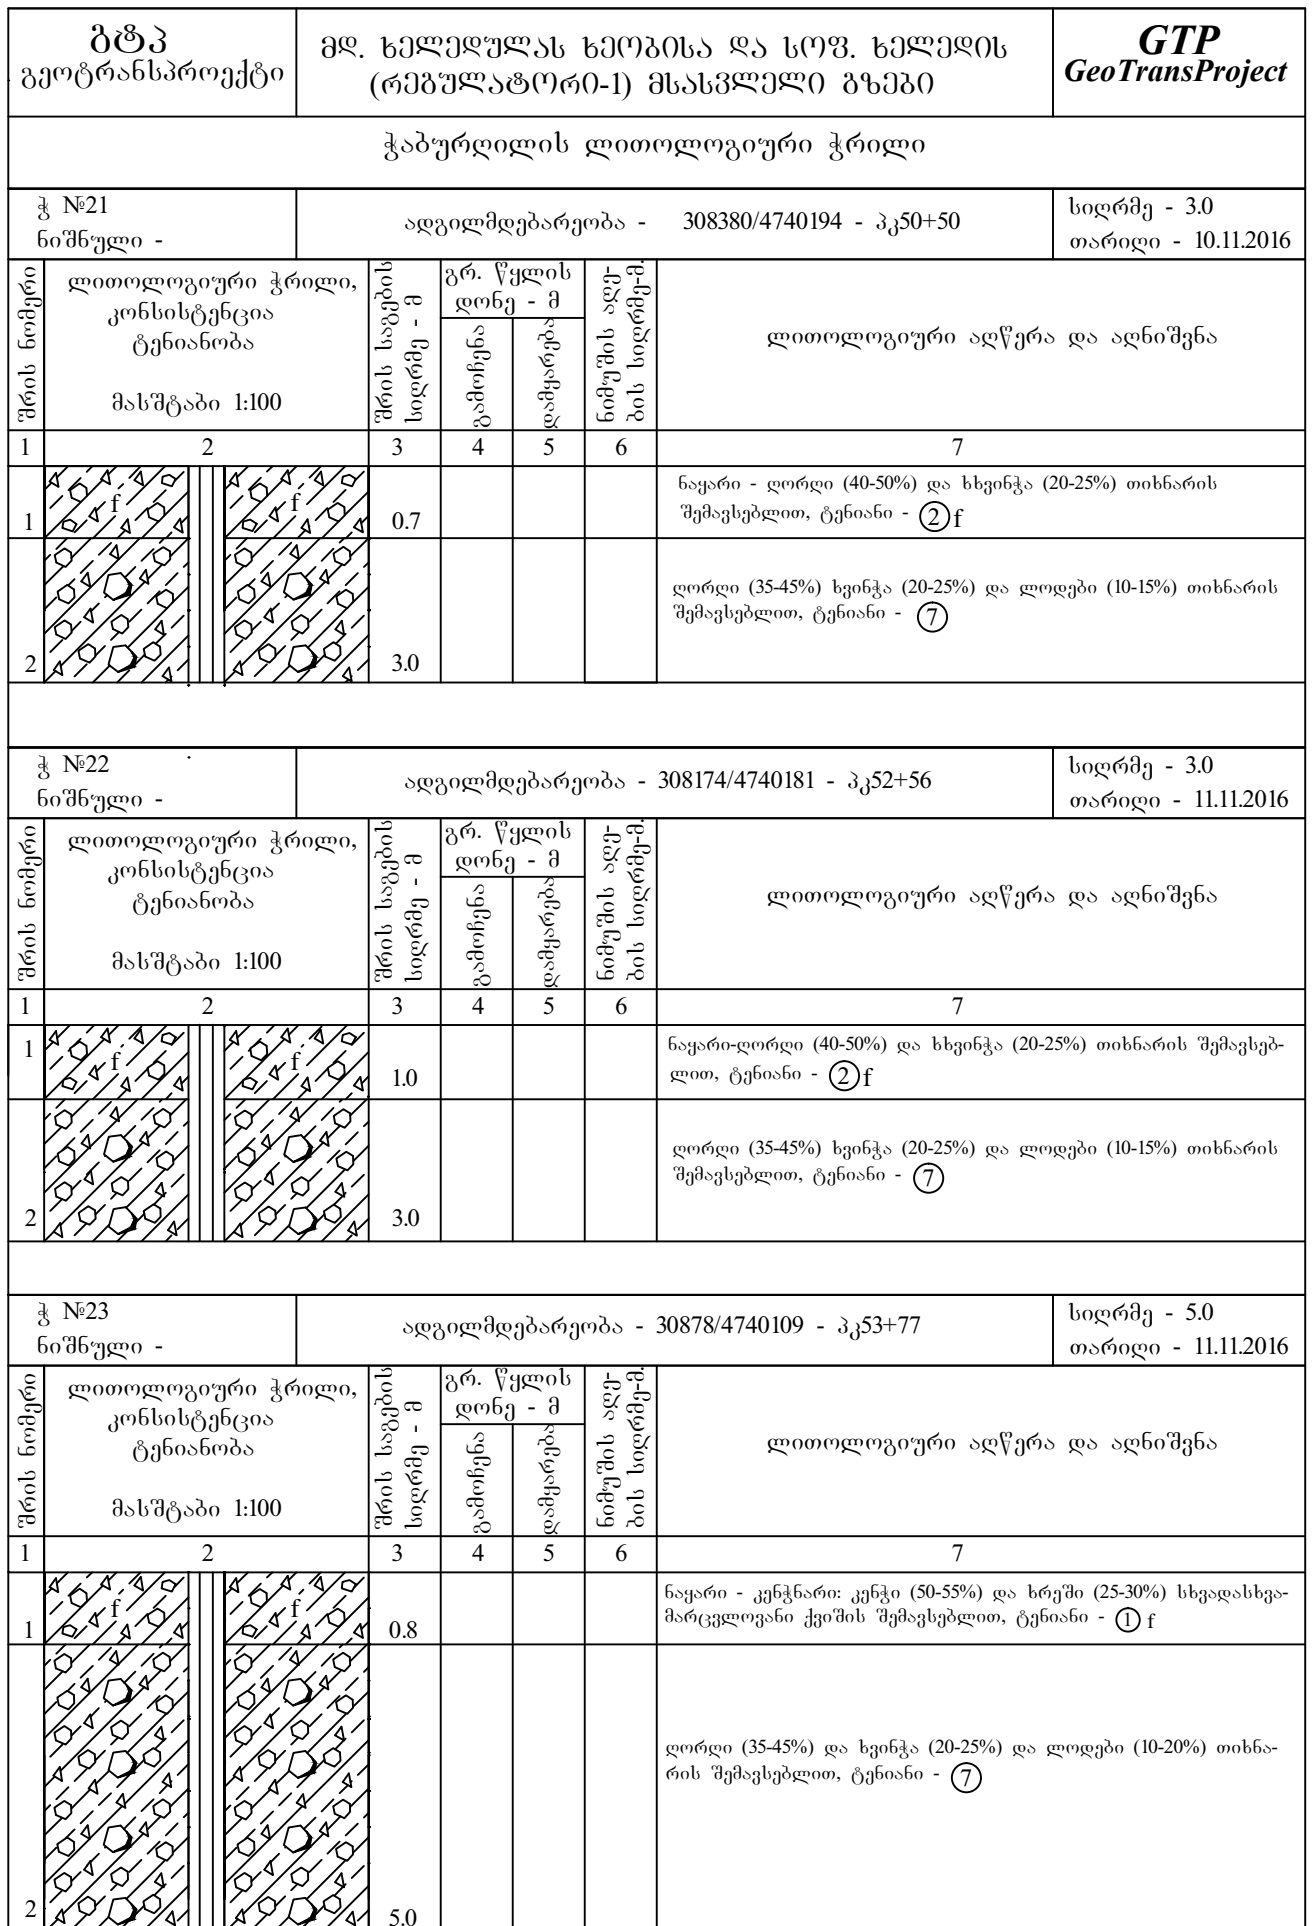 გტპ
გეოტრანსპროექტი
მდ. ხელედულას ხეობისა და სოფ. ხელედის
(რეგულატორი-1) მისასვლელი გზები
GTP
GeoTransProject
ჭაბურღილის ლითოლოგიური ჭრილი
ჭ №21
ნიშნული -
ადგილმდებარეობა - 308380/4740194 - პკ50+50
სიღრმე - 3.0
თარიღი - 10.11.2016
შრის ნომერი
ლითოლოგიური ჭრილი,
კონსისტენცია
ტენიანობა
მასშტაბი 1:100
შრის საგების
სიღრმე - მ
გრ. წყლის
დონე - მ
გამოჩენა
დამყარება
ნიმუშის აღე-
ბის სიღრმე-მ.
ლითოლოგიური აღწერა და აღნიშვნა
1 2 3 4 5 6 7
1
f f
0.7
ნაყარი - ღორღი (40-50%) და ხხვინჭა (20-25%) თიხნარის
შემავსებლით, ტენიანი - 2 f
2
3.0
ღორღი (35-45%) ხვინჭა (20-25%) და ლოდები (10-15%) თიხნარის
შემავსებლით, ტენიანი - 7
ჭ №22
ნიშნული -
ადგილმდებარეობა - 308174/4740181 - პკ52+56
სიღრმე - 3.0
თარიღი - 11.11.2016
შრის ნომერი
ლითოლოგიური ჭრილი,
კონსისტენცია
ტენიანობა
მასშტაბი 1:100
შრის საგების
სიღრმე - მ
გრ. წყლის
დონე - მ
გამოჩენა
დამყარება
ნიმუშის აღე-
ბის სიღრმე-მ.
ლითოლოგიური აღწერა და აღნიშვნა
1 2 3 4 5 6 7
1
f f
1.0
ნაყარი-ღორღი (40-50%) და ხხვინჭა (20-25%) თიხნარის შემავსებ-
ლით, ტენიანი - 2 f
2
3.0
ღორღი (35-45%) ხვინჭა (20-25%) და ლოდები (10-15%) თიხნარის
შემავსებლით, ტენიანი - 7
ჭ №23
ნიშნული -
ადგილმდებარეობა - 30878/4740109 - პკ53+77
სიღრმე - 5.0
თარიღი - 11.11.2016
შრის ნომერი
ლითოლოგიური ჭრილი,
კონსისტენცია
ტენიანობა
მასშტაბი 1:100
შრის საგების
სიღრმე - მ
გრ. წყლის
დონე - მ
გამოჩენა
დამყარება
ნიმუშის აღე-
ბის სიღრმე-მ.
ლითოლოგიური აღწერა და აღნიშვნა
1 2 3 4 5 6 7
1
f f
0.8
ნაყარი - კენჭნარი: კენჭი (50-55%) და ხრეში (25-30%) სხვადასხვა-
მარცვლოვანი ქვიშის შემავსებლით, ტენიანი - 1 f
2
5.0
ღორღი (35-45%) და ხვინჭა (20-25%) და ლოდები (10-20%) თიხნა-
რის შემავსებლით, ტენიანი - 7